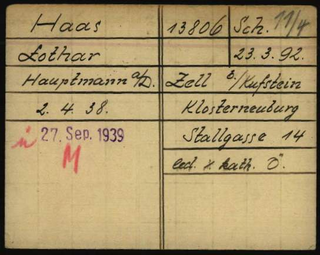 Haas 13806 Sch. 11/4
Lothar 23.3.92.
Hauptmann a/D. Zell b/Kufstein
2.4.38. Klosterneuburg
27. Sep. 1939 Stallgasse 14
M led. kath. Ö.